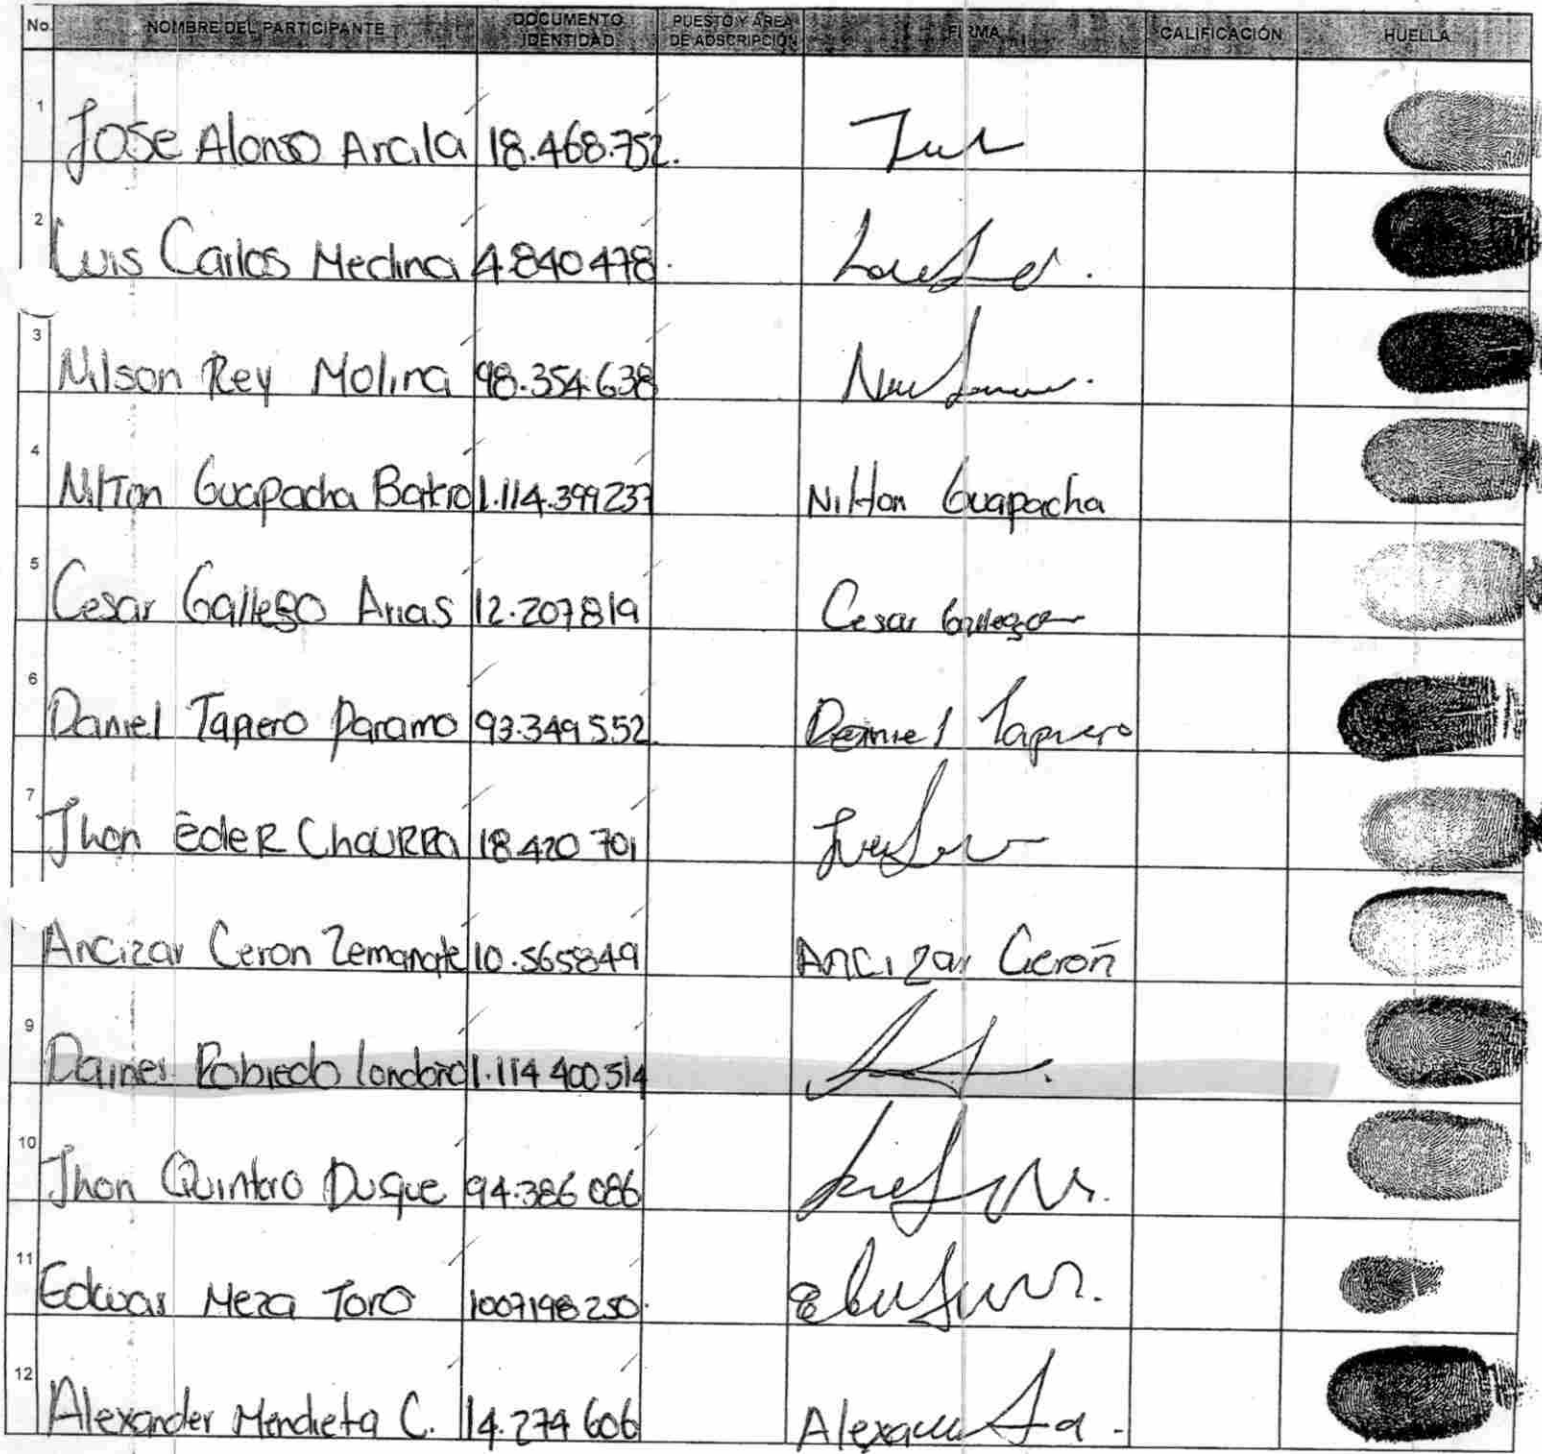 No. NOMBRE DEL PARTICIPANTE DOCUMENTO IDENTIDAD PUESTO Y ÁREA DE ADSCRIPCIÓN FIRMA CALIFICACIÓN HUELLA
1 Jose Alonso Arcila 18.468.752.
2 Luis Carlos Medina 4.840478.
3 Nilson Rey Molina 98.354.638
4 Nilton Guapacha Batro 1.114.399237 Nilton Guapacha
5 Cesar Gallego Arias 12.207819 Cesar Gallego
6 Daniel Tapiero Paramo 93.349552 Daniel Tapiero
7 Jhon Eder Chaurra 18.420 701
Ancizar Ceron Zemanate 10.565849 Ancizar Cerón
9 Dainer Robledo Londoño 1.114 400514
10 Jhon Quintero Duque 94.386 086
11 Edwar Meza Toro 1007198250.
12 Alexander Mendieta C. 14.274 606